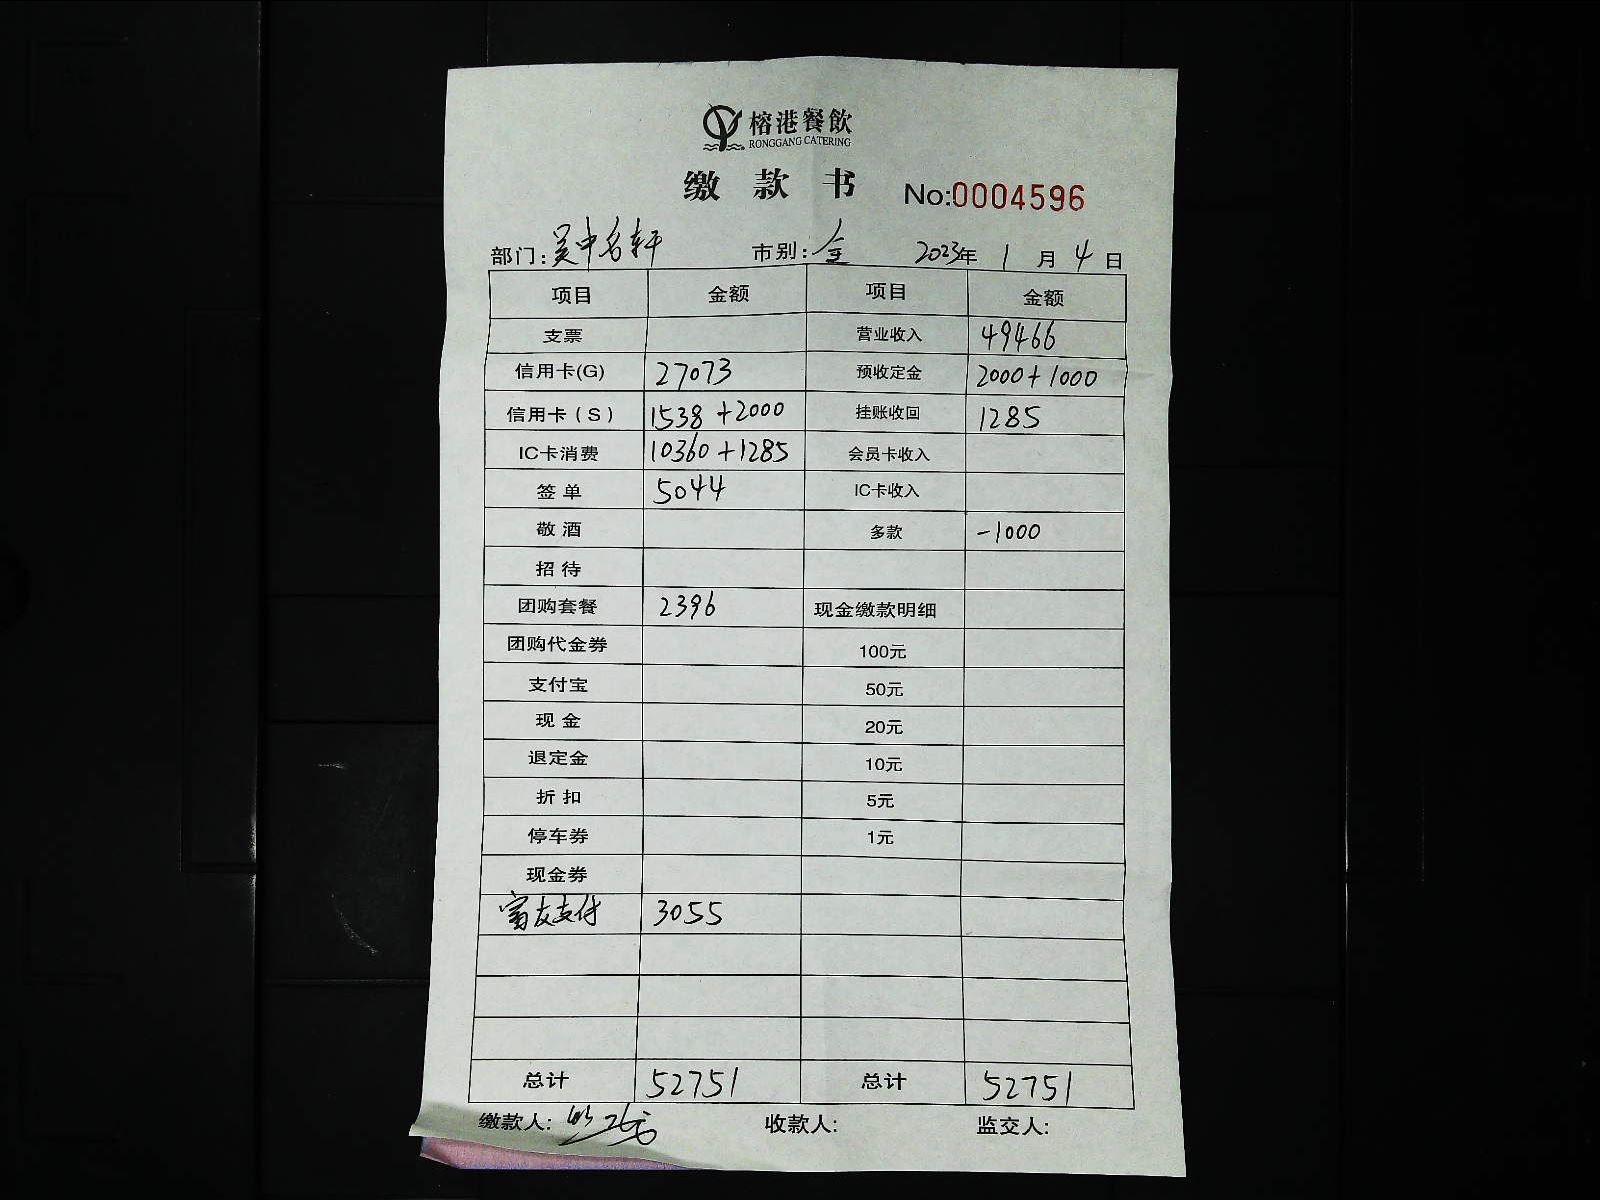 榕港餐飲
RONGGANG CATERING
缴款书 No:0004596
部门:吴中名轩 市别:全 2023年1月4日
项目 金额 项目 金额
支票 营业收入 49466
信用卡(G) 27073 预收定金 2000+1000
信用卡(S) 1538+2000 挂账收回 1285
IC卡消费 10360+1285 会员卡收入
签单 5044 IC卡收入
敬酒 多款 -1000
招待
团购套餐 2396 现金缴款明细
团购代金券 100元
支付宝 50元
现金 20元
退定金 10元
折扣 5元
停车券 1元
现金券
富友支付 3055
总计 52751 总计 52751
缴款人: 收款人: 监交人: